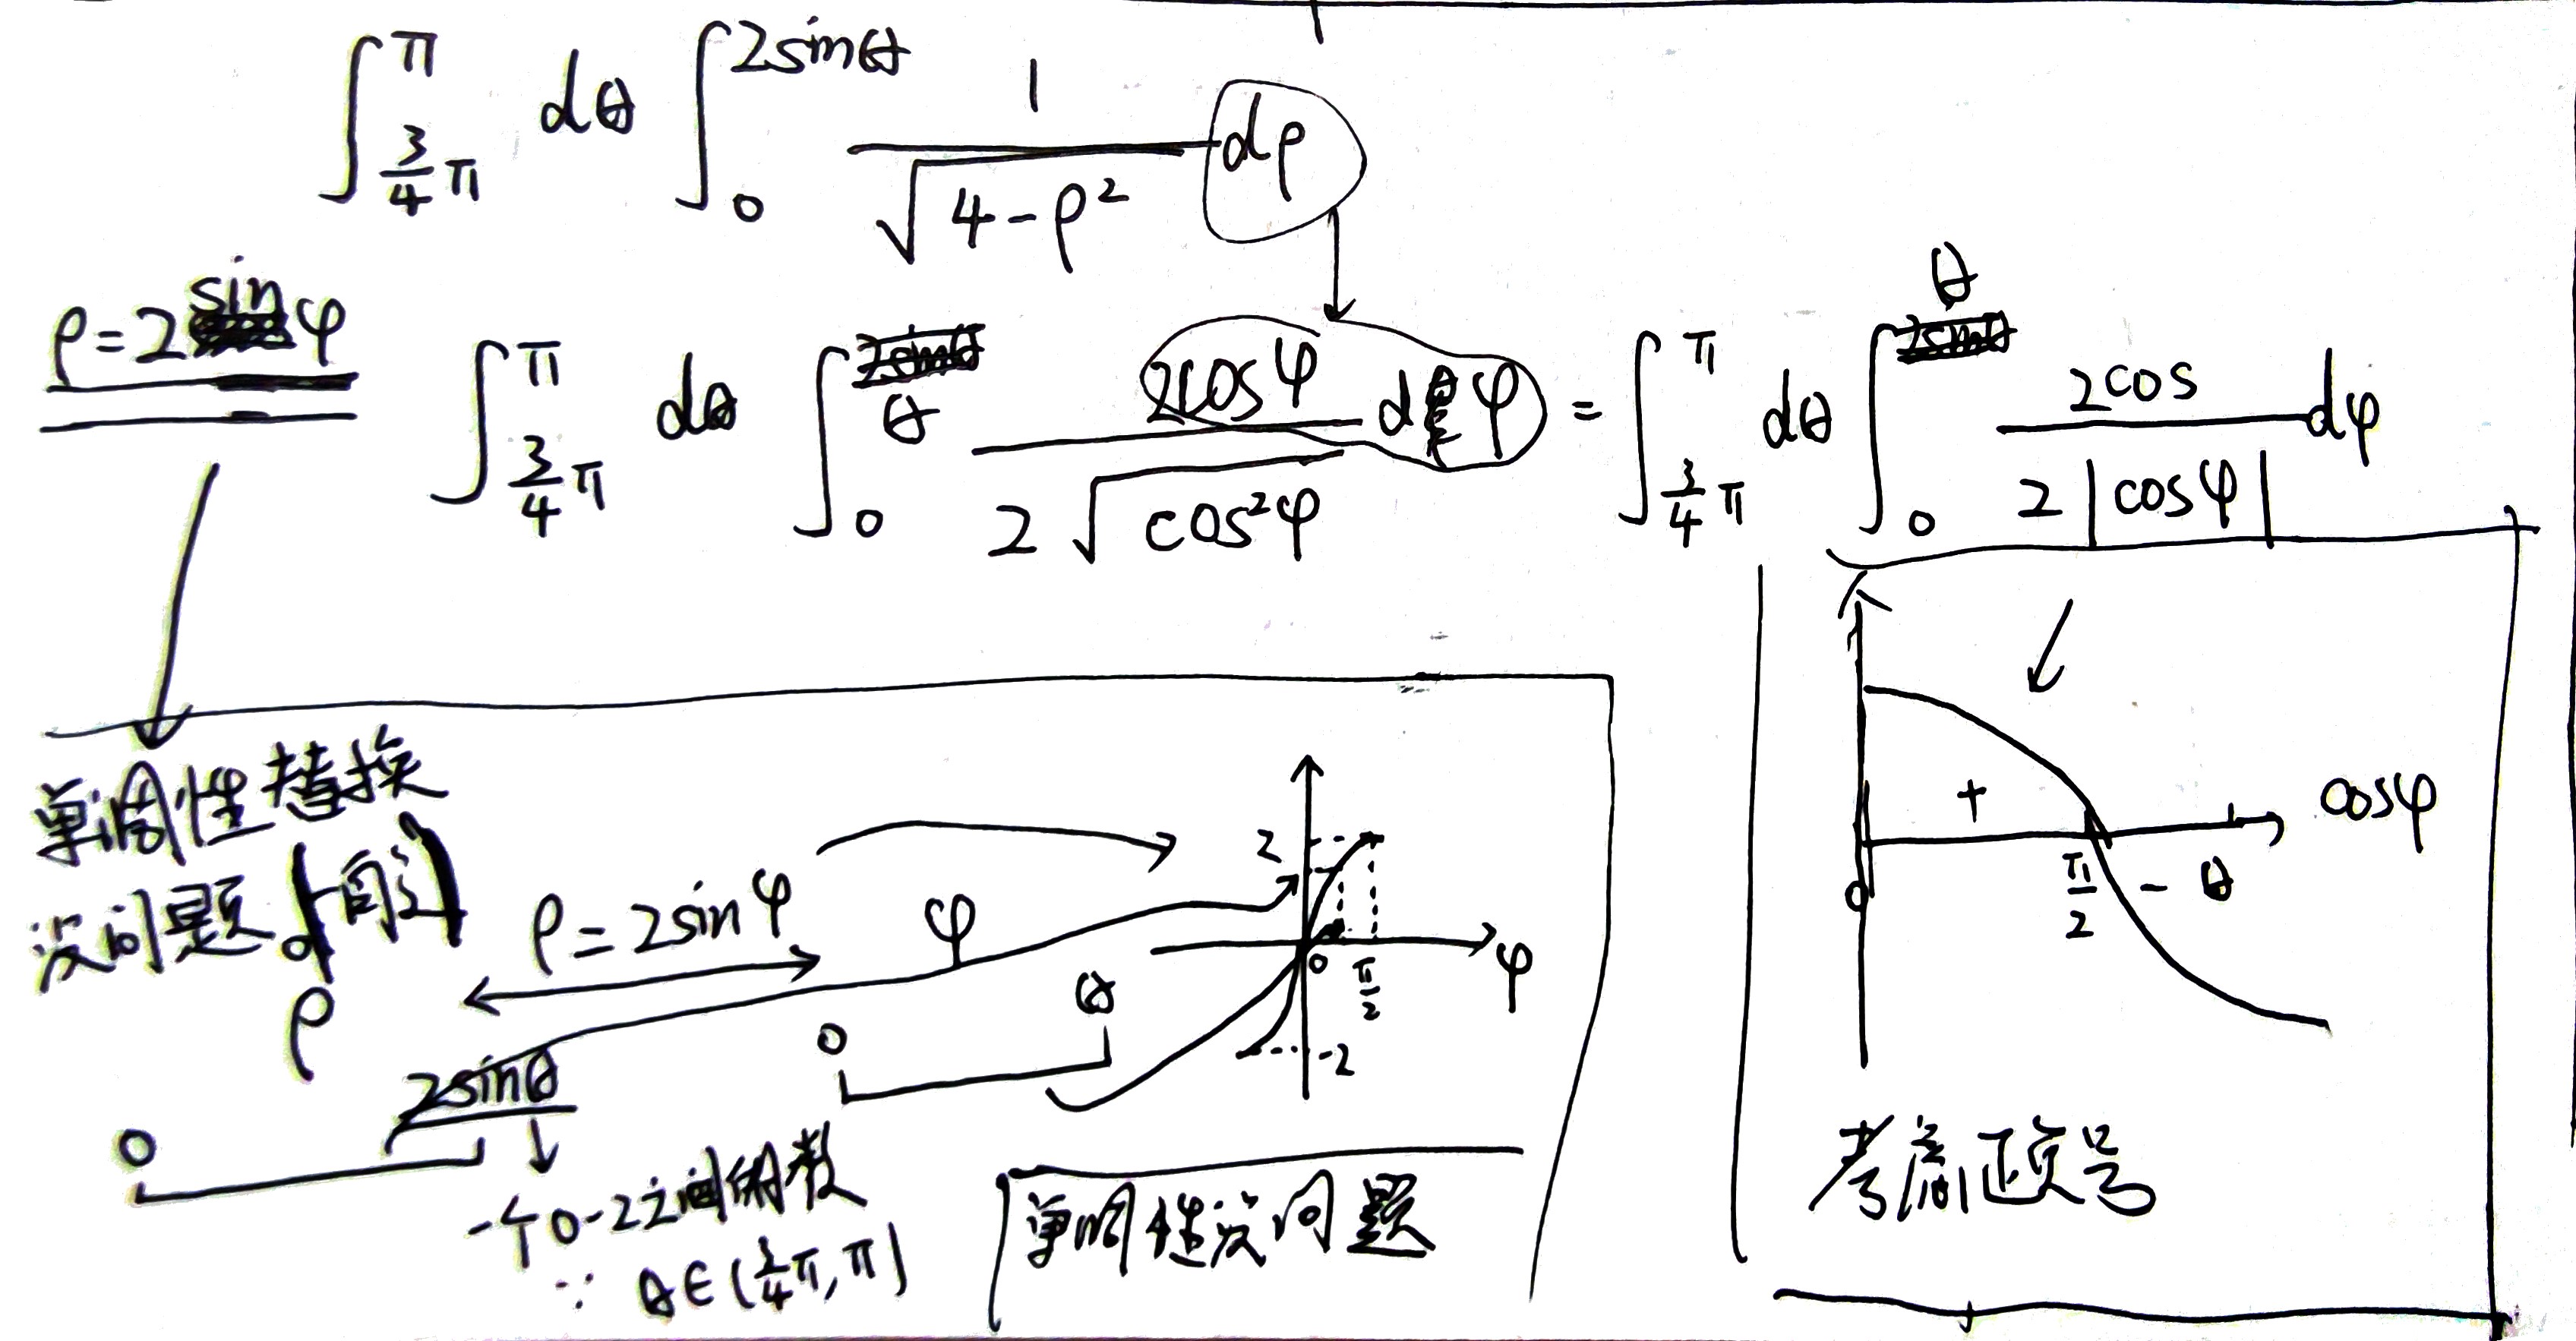 ∫_{3/4 π}^{π} dθ ∫_0^{2sinθ} 1/√(4-ρ²) dρ
ρ=2sinφ
∫_{3/4 π}^{π} dθ ∫_0^{θ} 2cosφ/(2√(cos²φ)) dφ = ∫_{3/4 π}^{π} dθ ∫_0^{θ} 2cos/(2|cosφ|) dφ
单调性替换
没问题
ρ
ρ=2sinφ
φ
0
2sinθ
0
θ
2
0
π/2
φ
-2
一个0-2之间的数
∵ θ∈(3/4 π, π)
单调性没问题
+
cosφ
0
π/2
- θ
考虑正负号